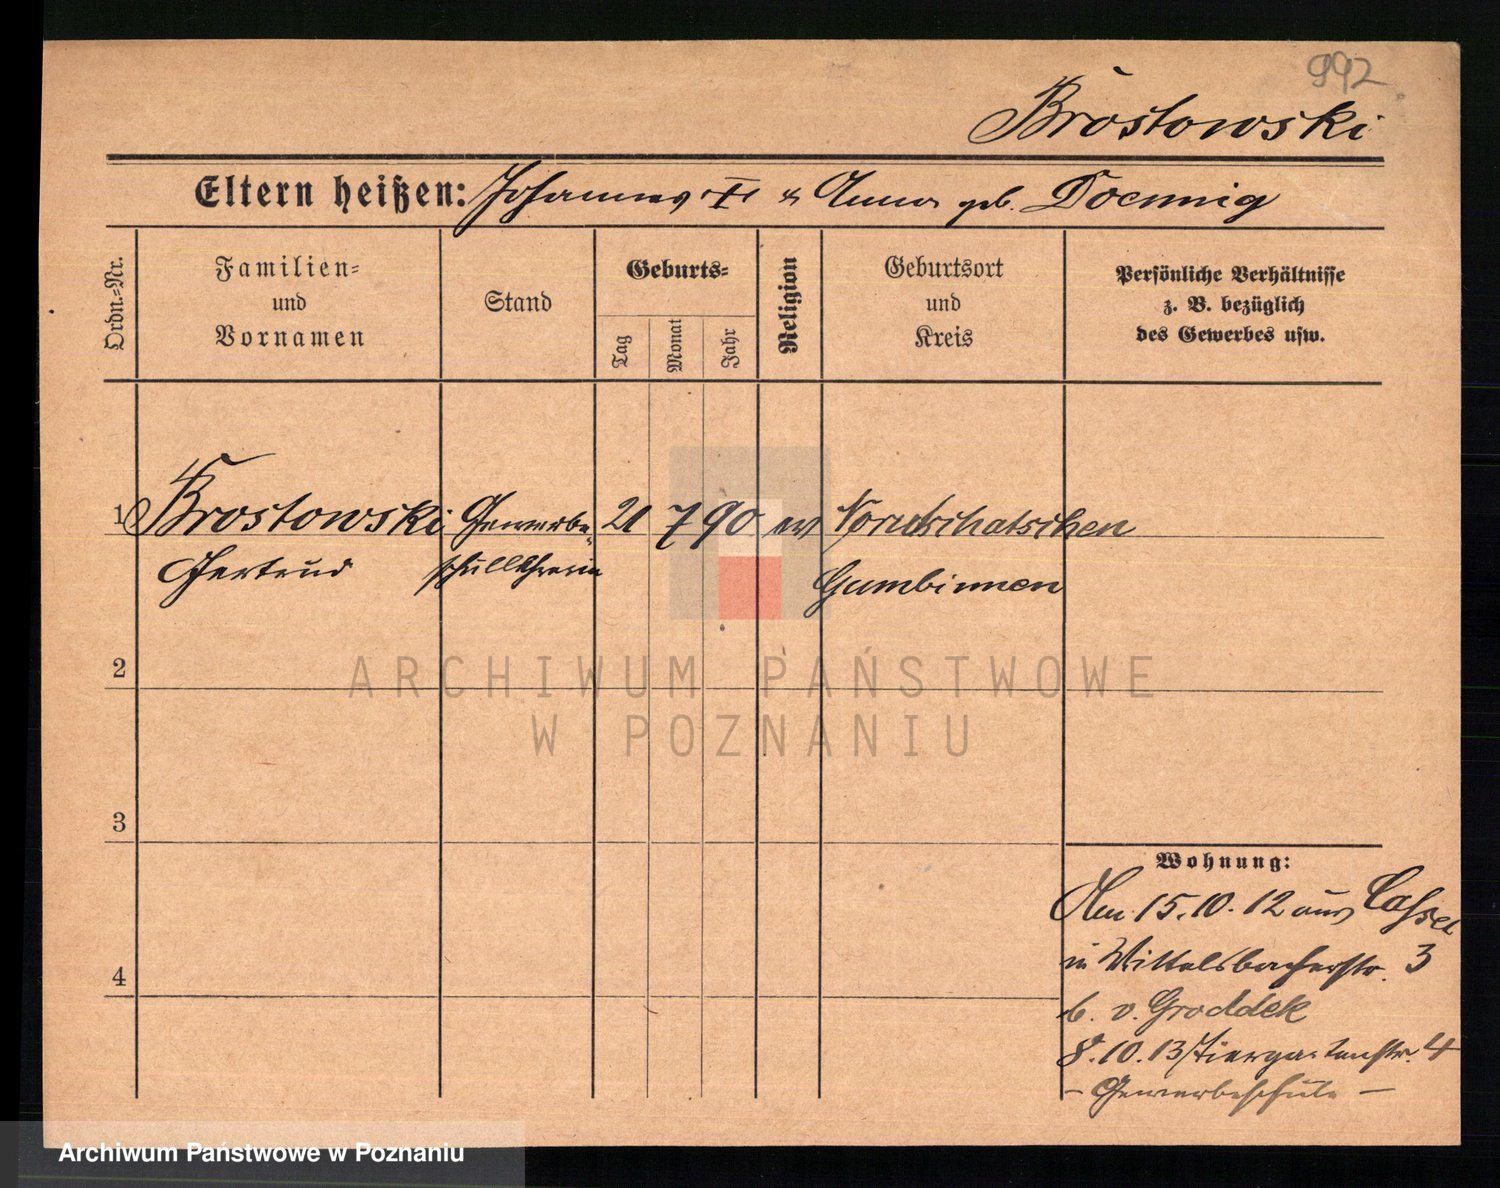 992
Brostowski
Eltern heißen: Johannes † & Anna geb. Doennig
Ordn.-Nr.
Familien-
und
Vornamen
Stand
Geburts-
Tag
Monat
Jahr
Religion
Geburtsort
und
Kreis
Persönliche Verhältnisse
z. B. bezüglich
des Gewerbes usw.
1 Brostowski Gewerbe- 21 7 90 ev Norutschatschen
Gertrud schullehrerin Gumbinnen
2
3
4
Wohnung:
Am 15.10.12 aus Cassel
in Wittelsbacherstr. 3
b. v. Groddek
8.10.13 Tiergartenstr. 4
- Gewerbeschule -
ARCHIWUM PAŃSTWOWE
W POZNANIU
Archiwum Państwowe w Poznaniu